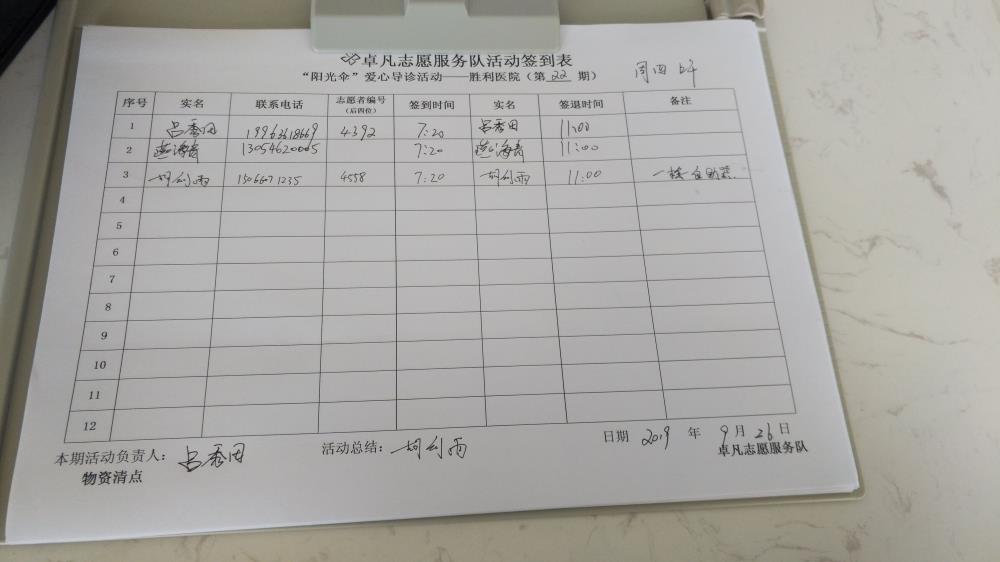 卓凡志愿服务队活动签到表
“阳光伞”爱心导诊活动——胜利医院（第 22 期） 周四
序号 实名 联系电话 志愿者编号（后四位） 签到时间 实名 签退时间 备注
1 吕秀田 19963618669 4392 7:20 吕秀田 11:00
2 海青 13054620005 7:20 海青 11:00
3 胡剑雨 15066071235 4558 7:20 胡剑雨 11:00 一楼自助器
4
5
6
7
8
9
10
11
12
本期活动负责人： 吕秀田 活动总结： 胡剑雨 日期 2019 年 9 月 26 日
物资清点 卓凡志愿服务队